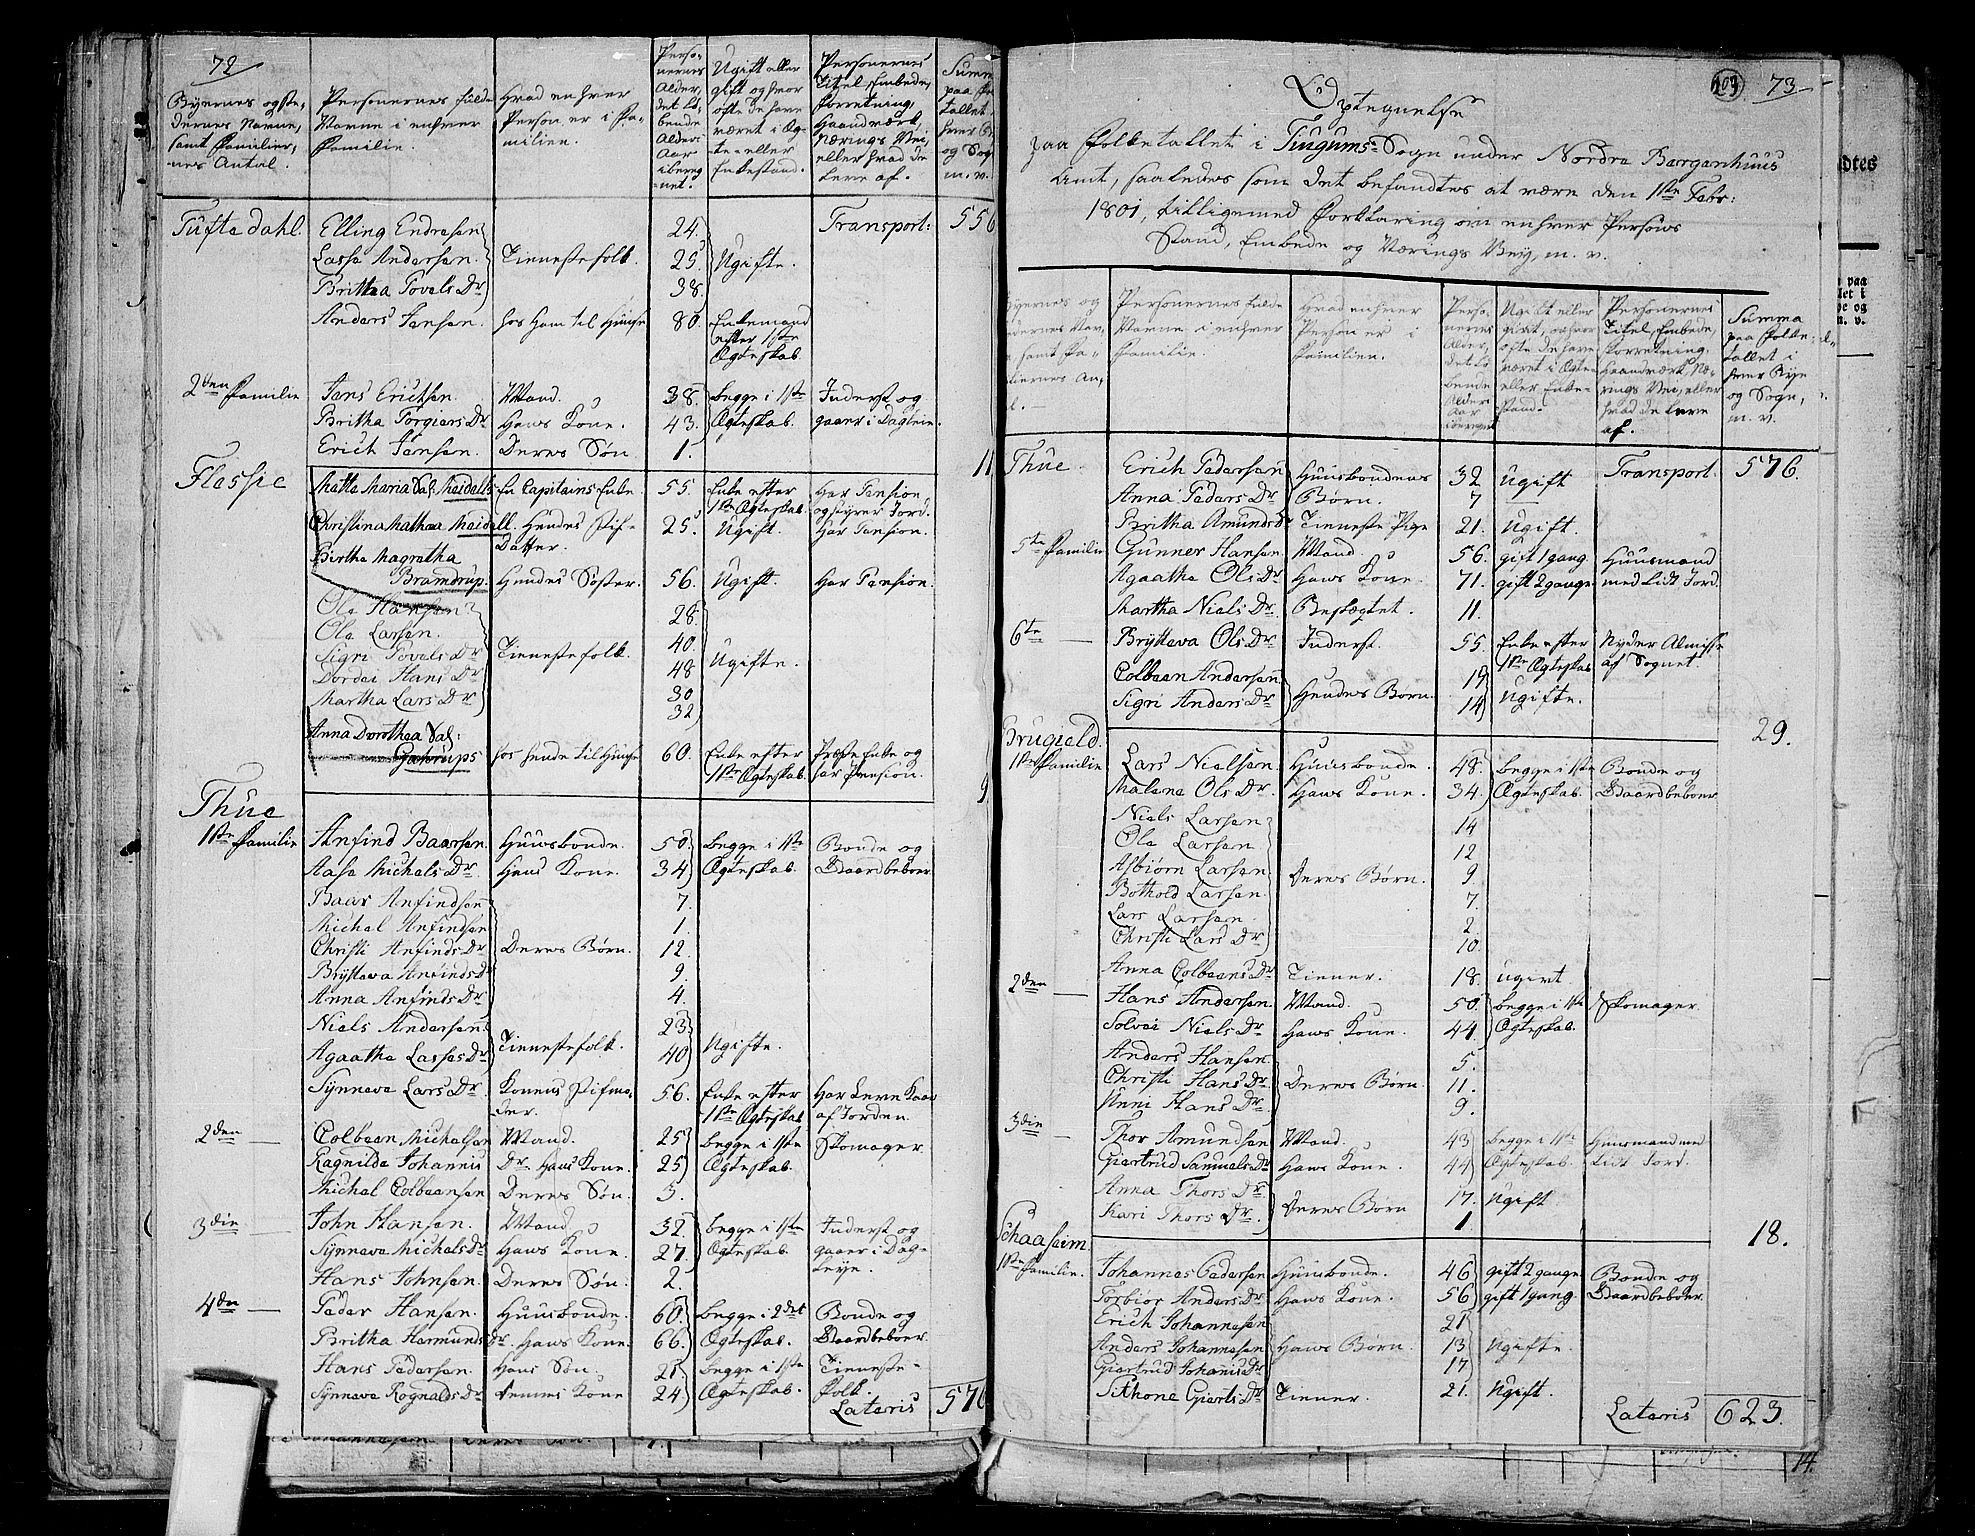 72
Byernes og Ste-
dernes Navne,
samt Familier-
nes Antal.
Personernes fulde
Navne i enhver
Familie.
Hvad enhver
Person er i Fa-
milien.
Perso-
nernes
Alder,
det lø-
bende
Alders
Aar
ibereg-
net.
Ugift eller
gift og hvor
ofte de have
været i Æg-
te- eller
Enkestand.
Personernes
Titel, Embede,
Forretning,
Haandværk,
Nærings Vei,
eller hvad de
leve af.
Summ
paa Fo
tallet
hver B
og Sog
m. v.
Tufte dahl. Elling Endresen 24. Transport: 556
Lasse Andersen. Tienestefolk. 25. Ugifte.
Brithea Povels Dr 38.
Anders Jensen. hos ham til Huuse 80. Enkemand
efter 1ste
Ægteskab.
2den Familie Jens Erichsen. Mand. 38. begge i 1ste Inderst og
Britha Torgiers Dr Hans Kone. 43. Ægteskab. gaaer i Dagleie.
Erich Jensen. Deres Søn. 1.
11
Flessie Mette Maria Sal. Meidells En Capitains Enke. 55. Enke efter Har Pension
1ste Ægteskab. og styrer Jord.
Christina Mathea Meidell. Hendes Stif- 25. Ugift. Har Pension.
Datter.
Birthe Magrethe
Bramdrup. Hendes Søster. 56. Ugift. Har Pension.
Ole Hansen 28.
Ole Larsen. 40.
Sigri Povels Dr Tienestefolk. 48 Ugifte.
Dordei Hans Dr 30
Martha Lars Dr 32
Anna Dorothea Sal:
Gatrups hos hende til Huuse 60. Enke efter Præste Enke og
1ste Ægteskab. har Pension.
9
Thue
1ste Familie Anfind Baarsen Huusbonde. 50. begge i 1ste Bonde og
Aase Michels Dr. Hans Kone. 34 Ægteskab. Gaardbeboer
Baar Anfindsen 7.
Michel Anfindsen 1.
Christi Anfinds Dr Deres Børn. 12.
Brytteva Anfinds Dr 9.
Anna Anfinds Dr 4.
Niels Andersen 23
Agaathe Lasses Dr Tienestefolk. 40 Ugifte.
Synneve Lars Dr Konens Stifmo- 56. Enke efter Har Leve Kaar
der. 1ste Ægteskab af Jorden.
2den — Colbeen Michelsen Mand. 25 begge i 1ste Skomager.
Ragnilde Johannis Dr. Hans Kone. 25 Ægteskab.
Michel Colbeensen Deres Søn. 3.
3die — John Hansen. Mand 32. begge i 1ste Inderst og
Synneve Michels Dr Hans Kone. 27. Ægteskab. gaaer i Dag-
leye.
Hans Johnsen. Deres Søn. 2.
4de — Peder Hansen. Huusbonde. 60. begge i 2det Bonde og
Britha Harmunds Dr. Hans Kone. 66. Ægteskab. Gaardbeboer.
Hans Pedersen. Hans Søn. 21. begge i 1ste Tieneste-
Synneve Rognalds Dr. dennes Kone 24. Ægteskab. folk.
Lateris 576
73
Optegnelse
paa Folketallet i Tiugums Sogn under Nordre Bergenhuus
Amt, saaledes som det befandtes at være den 1ste Febr:
1801, tilligemed Forklaring om enhver Persons
Stand, Embede og Nærings Vey, m. v.
Personernes fulde
Navne i enhver
Familie.
Hvad enhver
Person er i
Familien.
Perso-
nernes
Alder,
det lø-
bende
Alders
Aar
Ugift eller
gift, og hvor
ofte de have
været i Ægte-
eller Enke-
stand.
Personernes
Titel, Embede,
Forretning,
Haandværk, Næ-
rings Vei, eller
hvad de leve
af.
Summa
paa Folke-
tallet i
hver Bye
og Sogn,
m. v.
Thue. Erich Pedersen Huusbondens 32 Ugift Transport. 576.
Anna Peders Dr Børn. 7
Britha Amunds Dr Tieneste Pige 21. Ugift.
5te Familie Gunner Hansen Mand. 56. gift 1 gang Huusmand
Agaathe Ols Dr Hans Kone. 71. gift 2 gange. med Lidt Jord.
Martha Niels Dr Beslægtet. 11.
6te — Brytteva Ols Dr Inderst. 55. Enke efter Nyder Almisse
1ste Ægteskab af Sognet
Colbeen Andersen 19
Sigri Anders Dr Hendes Børn. 14 Ugifte.
29.
Brugield.
1ste Familie Lars Nielsen Huusbonde. 48. begge i 1ste Bonde og
Malene Ols Dr. Hans Kone. 34. Ægteskab. Gaardbeboer
Niels Larsen 14
Ole Larsen 12
Asbiørn Larsen Deres Børn. 9.
Bothold Larsen 7.
Lars Larsen 2.
Christi Lars Dr 10.
Anna Colbeens Dr Tiener. 18. ugivt
2den — Hans Andersen Mand. 50. begge i 1ste Skomager.
Solvei Niels Dr Hans Kone. 44. Ægteskab.
Anders Hansen 5.
Christi Hans Dr Deres Børn 11.
Unni Hans Dr 9.
3die — Thor Amundsen Mand. 43 begge i 1ste Huusmand med
Giertrud Samuels Dr Hans Kone. 44 Ægteskab. Lidt Jord.
Anna Thors Dr 17. Ugift
Kari Thors Dr. Deres Børn 1
18.
Schaaseim.
1ste Familie. Johannes Pedersen Huusbonde. 46 gift 2 gange Bonde og
Torbiør Anders Dr Hans Kone. 56 gift 1 gang Gaardbeboer.
Erich Johannesen 21
Anders Johannesen Hans Børn. 13 Ugifte.
Giertrud Johannis Dr 17
Sithone Gierts Dr Tiener. 21. Ugift.
Lateris 623.
14.